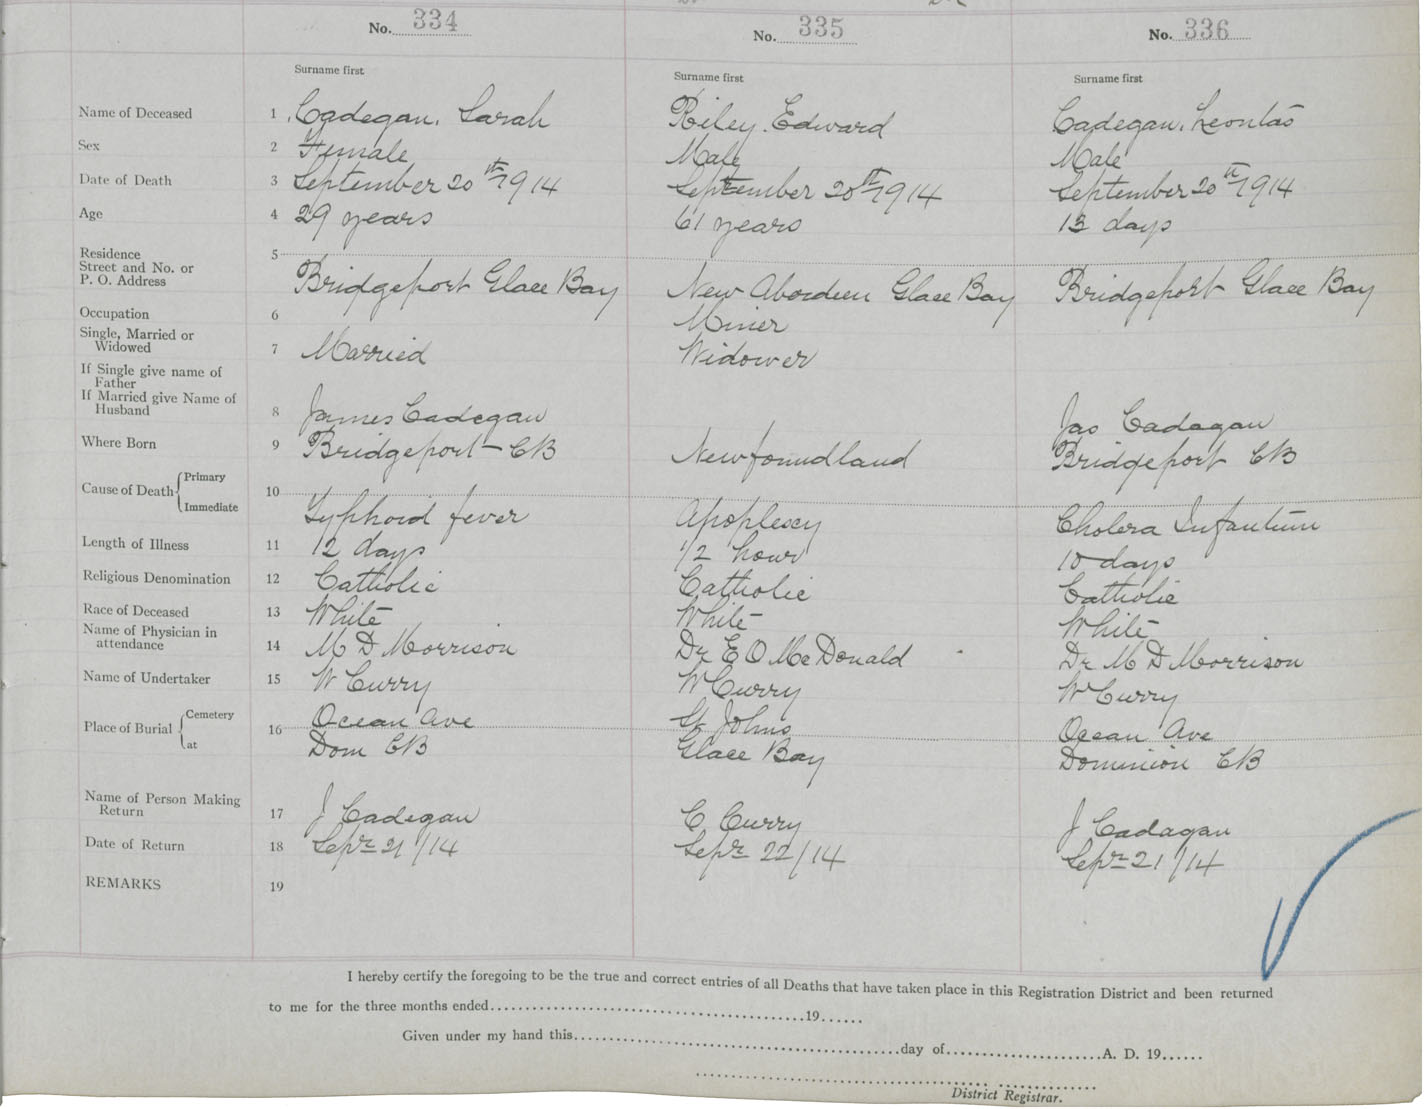 No. 334 No. 335 No. 336
Surname first Surname first Surname first
Name of Deceased 1 Cadegan, Sarah Riley, Edward Cadegan, Leontas
Sex 2 Female Male Male
Date of Death 3 September 20th 1914 September 20th 1914 September 20th 1914
Age 4 29 years 61 years 13 days
Residence 5
Street and No. or
P. O. Address Bridgeport Glace Bay New Aberdeen Glace Bay Bridgeport Glace Bay
Occupation 6 Miner
Single, Married or
Widowed 7 Married Widower
If Single give name of
Father
If Married give Name of
Husband 8 James Cadegan Jas Cadagan
Where Born 9 Bridgeport - CB Newfoundland Bridgeport CB
Cause of Death Primary 10
Immediate Typhoid fever Apoplexy Cholera Infantum
Length of Illness 11 12 days 1/2 hour 10 days
Religious Denomination 12 Catholic Catholic Catholic
Race of Deceased 13 White White White
Name of Physician in
attendance 14 M D Morrison Dr E O McDonald Dr M D Morrison
Name of Undertaker 15 W Curry W Curry W Curry
Place of Burial Cemetery 16 Ocean Ave St Johns Ocean Ave
at Dom CB Glace Bay Dominion CB
Name of Person Making
Return 17 J Cadegan C Curry J Cadagan
Date of Return 18 Sepr 21/14 Sepr 22/14 Sepr 21/14
REMARKS 19
I hereby certify the foregoing to be the true and correct entries of all Deaths that have taken place in this Registration District and been returned
to me for the three months ended 19
Given under my hand this day of A. D. 19
District Registrar.